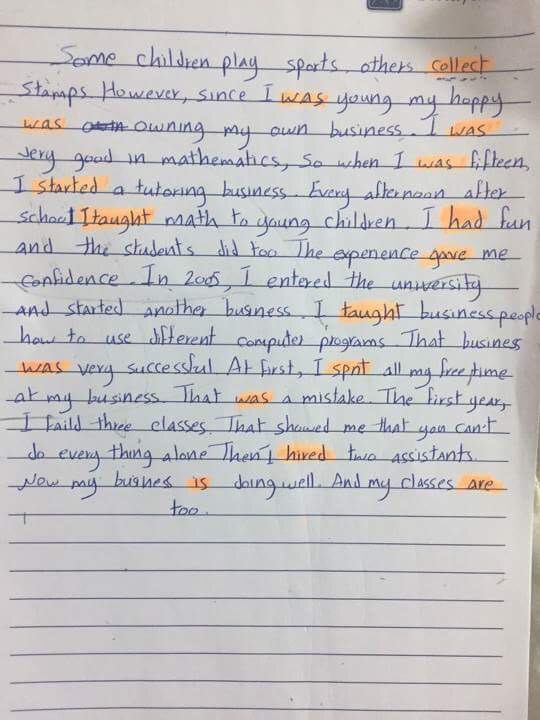 Some children play sports, others collect
stamps. However, since I was young my hoppy
was owning my own business. I was
very good in mathematics, so when I was fifteen,
I started a tutoring business. Every afternoon after
school I taught math to young children. I had fun
and the students did too. The experience gave me
confidence. In 2005, I entered the university
and started another business. I taught business people
how to use different computer programs. That business
was very successful. At first, I spnt all my free time
at my business. That was a mistake. The first year,
I faild three classes. That showed me that you can't
do every thing alone. Then I hired two assistants.
Now my busines is doing well. And my classes are
too.